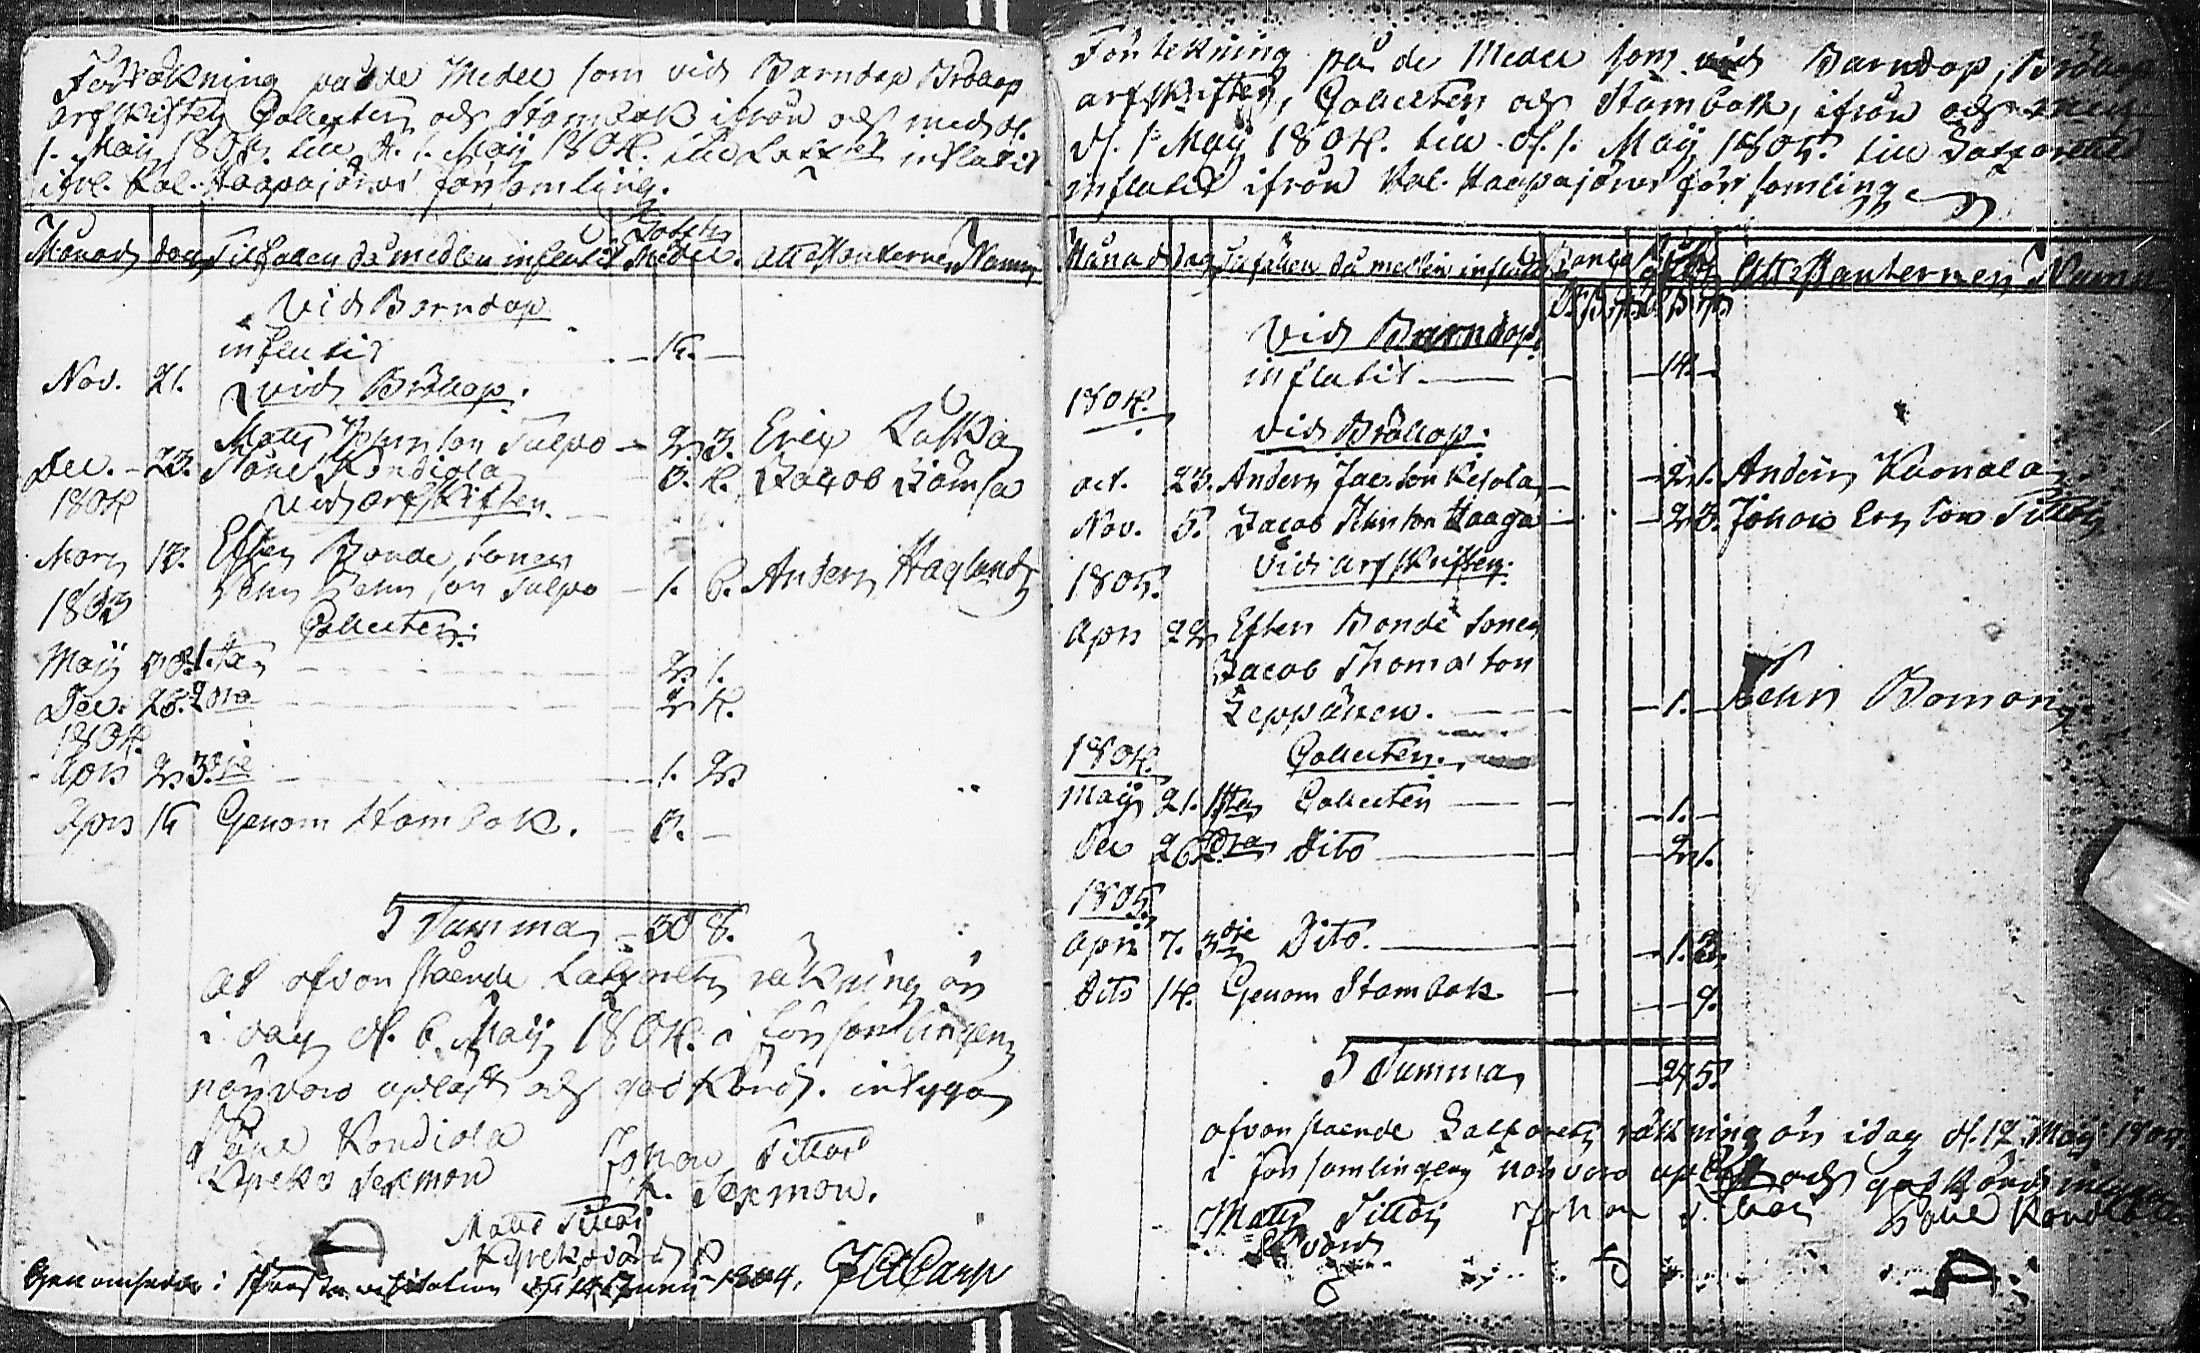 Förtekning på de Medel som vid Barndop Bröllop
arfskiften Collecter och Stambok ifrån och med d.
1. Maij 1803 till d. 1. Maij 1804. till Lazzret influtit
ifrå. Kal. Haapajärvi församling.
Månad dag Tilfällen då medlen influtit Medel. attestanternes Namn
vid Barndop
influtit - 14. -
Nov. 21. vid Bröllop.
Matts Johns son Tulpo - 2. 3. Eric
Dec. - 23. Påhl Kondiola 8. 4. Jacob Jämsa
1804 vid arfskiften.
Mars 13. Efter Bonde sonen
Johns son Tulpo - 1. 6. Anders Haglund
1803 Collecter.
Maij 1.sta 2. 1.
Dec. 26. 2dra 2 4.
1804.
Apr 2. 3dje - 1. 2
Apr 14 Genom Stambok. - 8. -
Summa - 30 8.
At ofvanstående Lazaretts räkning är
i dag d. 6. Maij 1804. i församlingens
närvaro upläst och godkänd. intyga
Påhl Kondiola Johan Tittos
Kyrko Sexmon K. Sexmon.
Matts Tittoi
Kyrckovärd
Genomsedd i Prosta visitation d. 14 Junii 1804.
Förtekning på de Medel som vid Barndop, Bröllop
arfskiften, Collecter och Stambok, ifrån och med
d. 1 Maij 1804. till d. 1. Maij 1805. till Lazarettet
influtit ifrån Kal. Haapajärvi församling
Månad Dag Tilfällen då medlen influtit Banco Attestanternes Namn
Vid Barndop.
influtit. - 14. -
1804. vid Bröllop.
oct. 23. Anders Jacs son Kesola - 2. 1. Anders Kuonala
Nov. 5. Jacob Johns son Haaga - 2. 3. Johan Ers son Tittoi
1805. Vid arfskiften.
Apr 22 Efter Bonde sonen
Jacob Thomas son
Leppänen. - 1. - Johns Boman
1804. Collecter.
Maij 21. 1sta Collecten - 1. -
Dec 26 2dra Dito - 2. 1.
1805.
April 7. 3dje Dito. - 1. 3.
Dito 14. Genom Stambok - 9.
Summa
ofvanstående Lazaretts räkning är idag d. 12. Maij 1805.
i församlingens närvaro upläst och godkänd intyga
Matts Tittoi Johan Tittoi Påhl Kondiola
K. värd